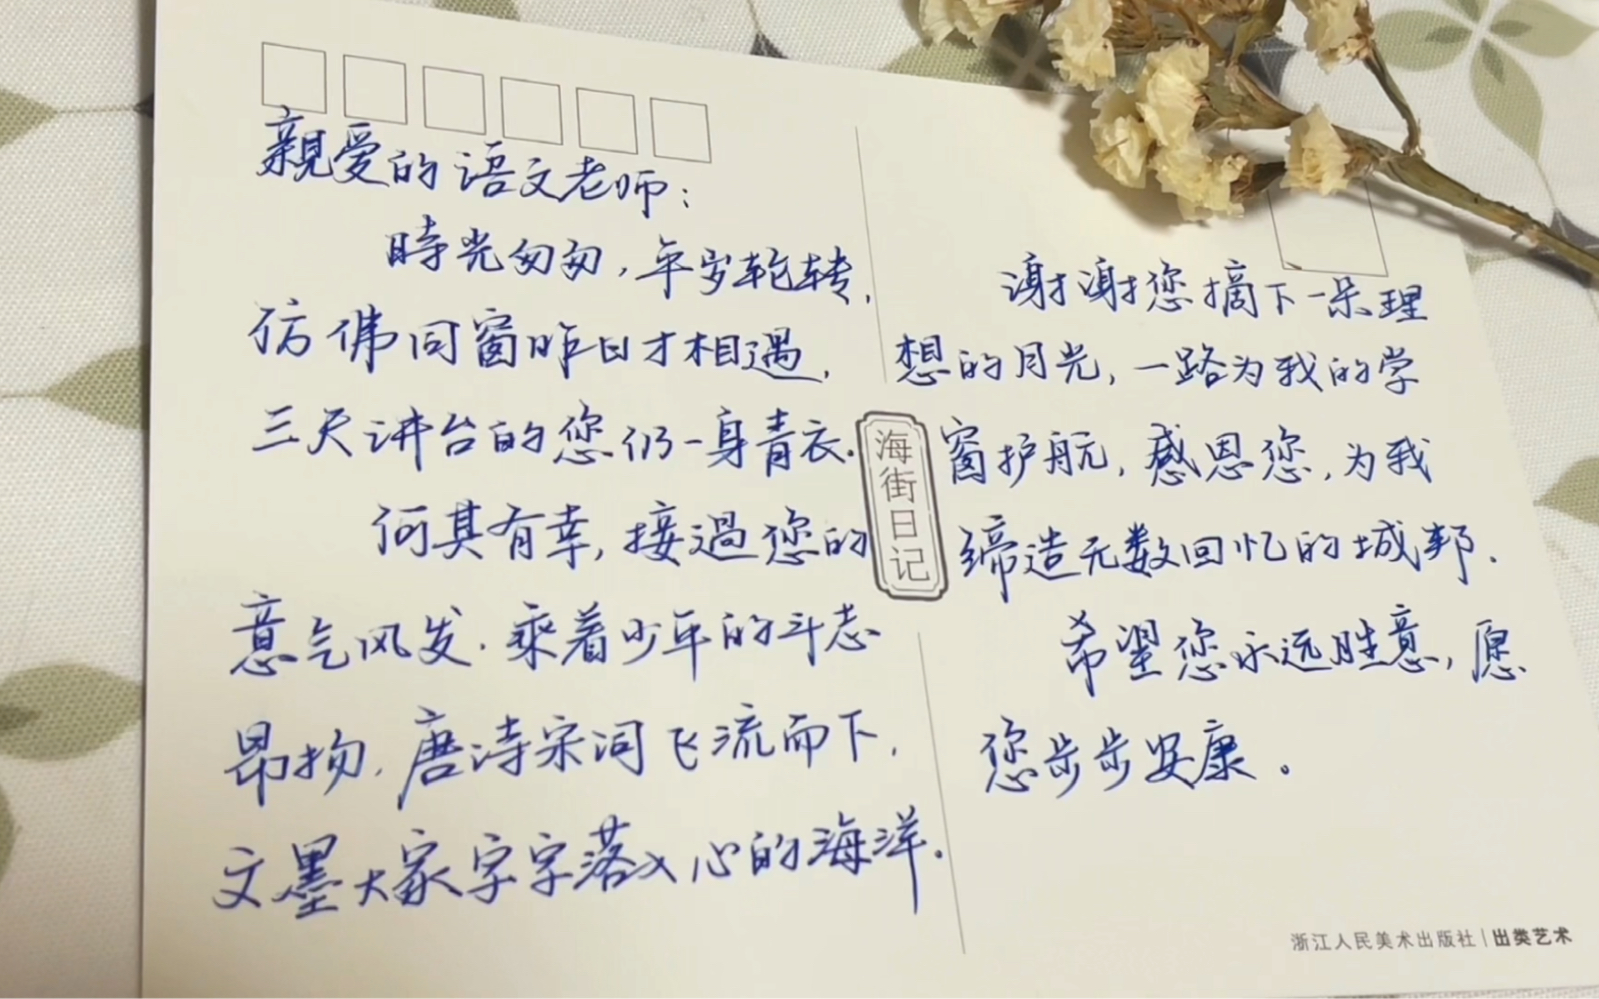 親爱的语文老师：
時光匆匆，年岁轮转，
彷佛同窗昨日才相遇，
三尺讲台的您仍一身青衣.
何其有幸，接過您的
意气风发.乘着少年的斗志
昂扬，唐诗宋词飞流而下，
文墨大家字字落入心的海洋.
海街日记
谢谢您摘下一朵理
想的月光，一路为我的学
窗护航，感恩您，为我
缔造无数回忆的城邦.
希望您永远胜意，愿
您步步安康。
浙江人民美术出版社|出类艺术